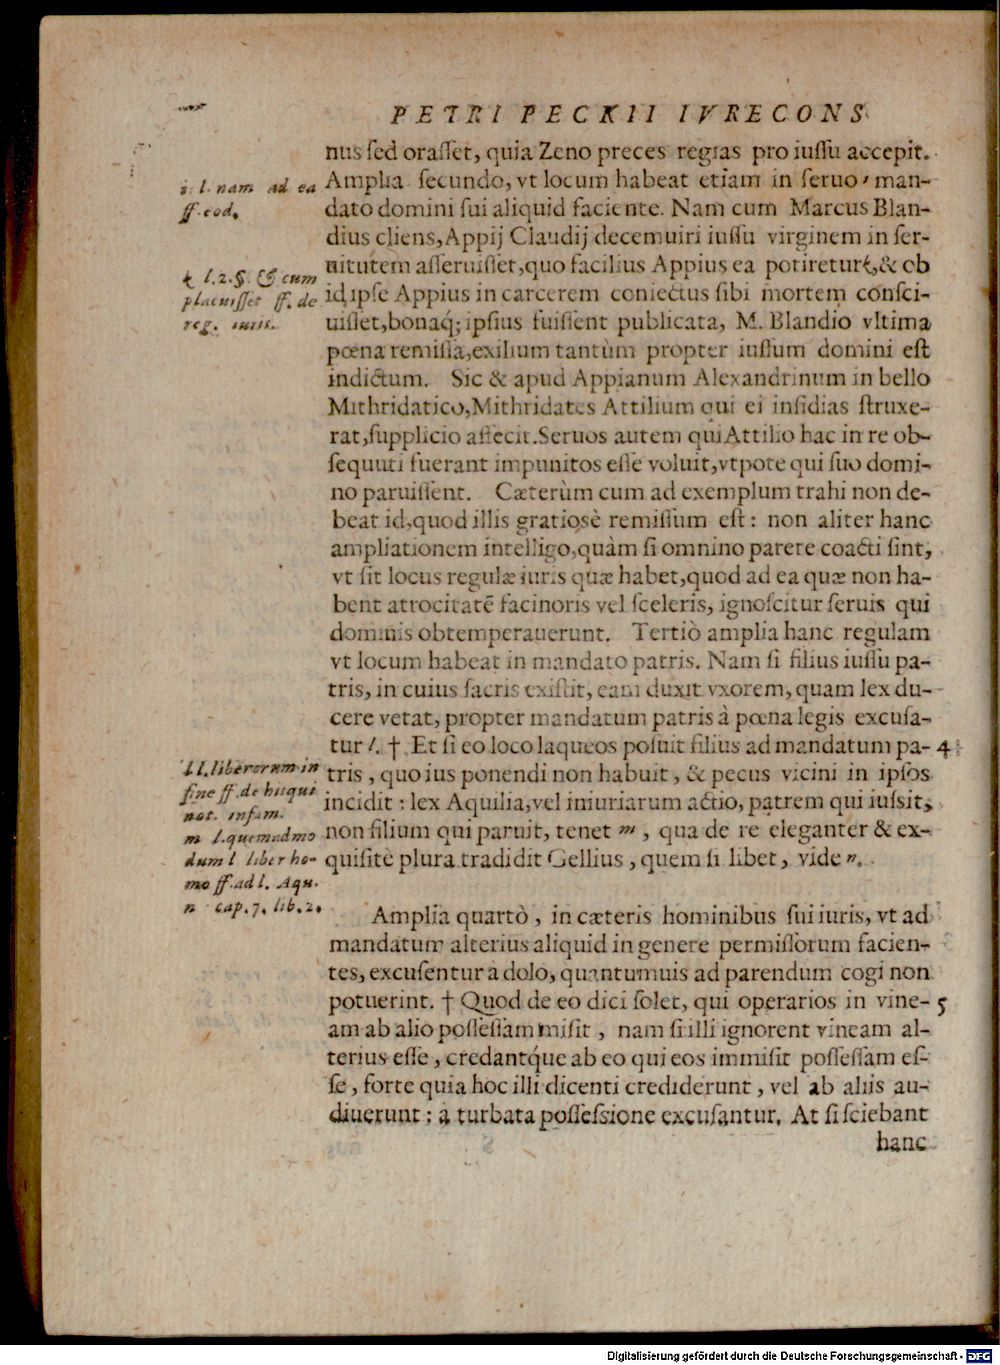 PETRI PECKII IVRECONS
nus sed orasset, quia Zeno preces regias pro iussu accepit.
Amplia secundo, vt locum habeat etiam in seruo i man-
dato domini sui aliquid faciente. Nam cum Marcus Blan-
dius cliens, Appij Claudij decemuiri iussu virginem in ser-
uitutem asseruisset, quo facilius Appius ea potiretur k, & ob
id ipse Appius in carcerem coniectus sibi mortem consci-
uisset, bonaq́; ipsius fuissent publicata, M. Blandio vltima
pœna remissa, exilium tantùm propter iussum domini est
indictum. Sic & apud Appianum Alexandrinum in bello
Mithridatico, Mithridates Attilium qui ei insidias struxe-
rat, supplicio affecit. Seruos autem qui Attilio hac in re ob-
sequuti fuerant impunitos esse voluit, vtpote qui suo domi-
no paruissent. Cæterùm cum ad exemplum trahi non de-
beat id, quod illis gratiosè remissum est: non aliter hanc
ampliationem intelligo, quàm si omnino parere coacti sint,
vt sit locus regulæ iuris quæ habet, quod ad ea quæ non ha-
bent atrocitatē facinoris vel sceleris, ignoscitur seruis qui
dominis obtemperauerunt. Tertiò amplia hanc regulam
vt locum habeat in mandato patris. Nam si filius iussu pa-
tris, in cuius sacris existit, eam duxit vxorem, quam lex du-
cere vetat, propter mandatum patris à pœna legis excusa-
tur l. † Et si eo loco laqueos posuit filius ad mandatum pa- 4
tris, quo ius ponendi non habuit, & pecus vicini in ipsos
incidit: lex Aquilia, vel iniuriarum actio, patrem qui iussit,
non filium qui paruit, tenet m, qua de re eleganter & ex-
quisitè plura tradidit Gellius, quem si libet, vide n.
Amplia quartò, in cæteris hominibus sui iuris, vt ad
mandatum alterius aliquid in genere permissorum facien-
tes, excusentur a dolo, quantumuis ad parendum cogi non
potuerint. † Quod de eo dici solet, qui operarios in vine- 5
am ab alio possessam misit, nam si illi ignorent vineam al-
terius esse, credantq́ue ab eo qui eos immisit possessam es-
se, forte quia hoc illi dicenti crediderunt, vel ab aliis au-
diuerunt: à turbata possessione excusantur. At si sciebant
hanc
i l. nam ad ea
ff. eod.
k l. 2. §. & cum
placuisset ff. de
reg. iuris.
l l. liberorum in
fine ff. de his qui
not. infam.
m l. quemadmo
dum l liber ho-
mo ff. ad l. Aqu.
n cap. 7. lib. 2.
Digitalisierung gefördert durch die Deutsche Forschungsgemeinschaft - DFG